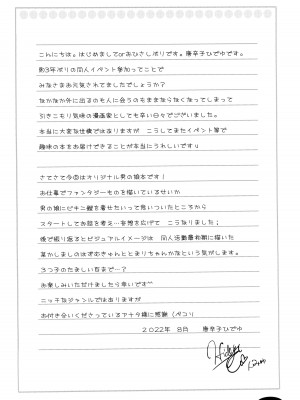 こんにちは。はじめましてorおひさしぶりです。唐辛子ひでゆです。
約3年ぶりの同人イベント参加ってことで
みなさまお元気されてましたでしょうか?
なかなか外に出るのも人に会うのもままならなくなってしまって
引きこもり気味の漫画家としても辛い日々でございます。
本当に大変な仕様ではありますが こうしてまたイベント等で
趣味の本をお届けできることが本当にうれしいですu
さてさて今回はオリジナル男の娘本です!
お仕事でファンタジーものを描いているせいか
男の娘にビキニ鎧を着せたいって思いついたところから
スタートしてお話を考え…妄想を広げて こうなりました;
後で振り返るとビジュアルイメージは 同人活動最初期に描いた
某かしましのはずむきゅんととまりちゃんかなという気がします。
3つ子のたましい百まで…?
お楽しみいただけましたら幸いです~
ニッチなジャンルではありますが
お付き合いくださっているアナタ様に感謝(ペコリ
2022年 8月 唐辛子ひでゆ